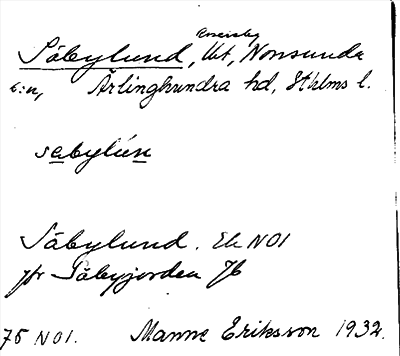 Säbylund, Ut, Norrsunda
s:n, Ärlinghundra hd, Sthlms l.
sabylún
Säbylund. Ek NO1
jfr Säbyjorden 76
75 NO1. Manne Eriksson 1932.